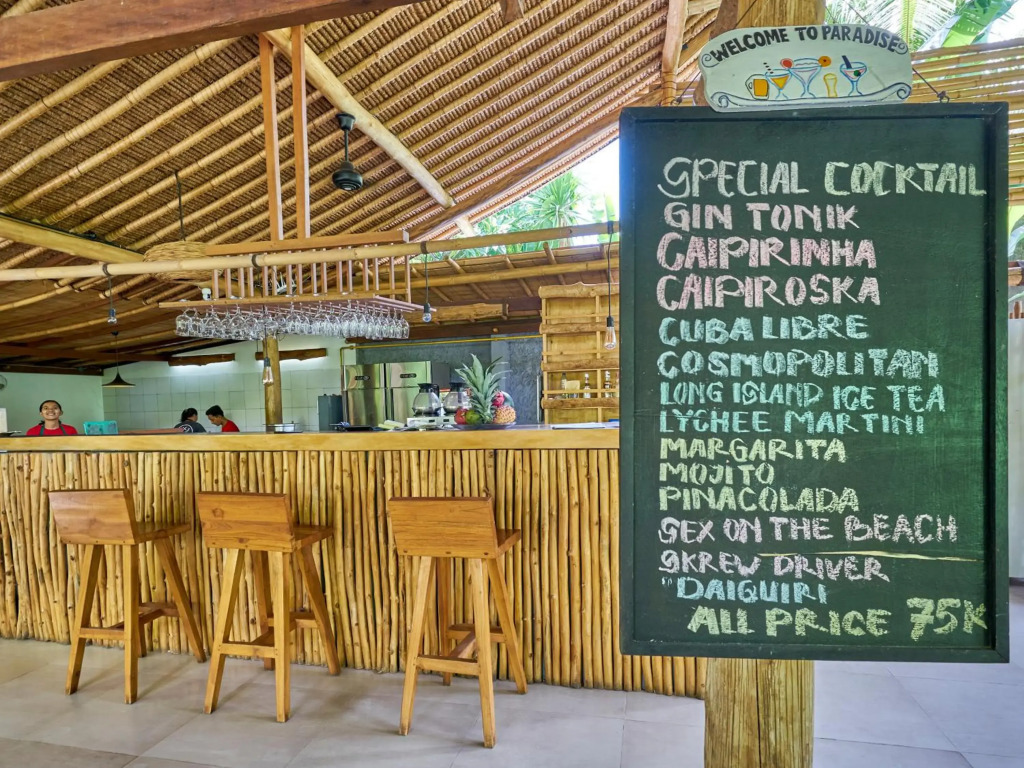 WELCOME TO PARADISE
SPECIAL COCKTAIL
GIN TONIK
CAIPIRINHA
CAIPIROSKA
CUBA LIBRE
COSMOPOLITAN
LONG ISLAND ICE TEA
LYCHEE MARTINI
MARGARITA
MOJITO
PINACOLADA
SEX ON THE BEACH
SKREW DRIVER
DAIQUIRI
ALL PRICE 75K